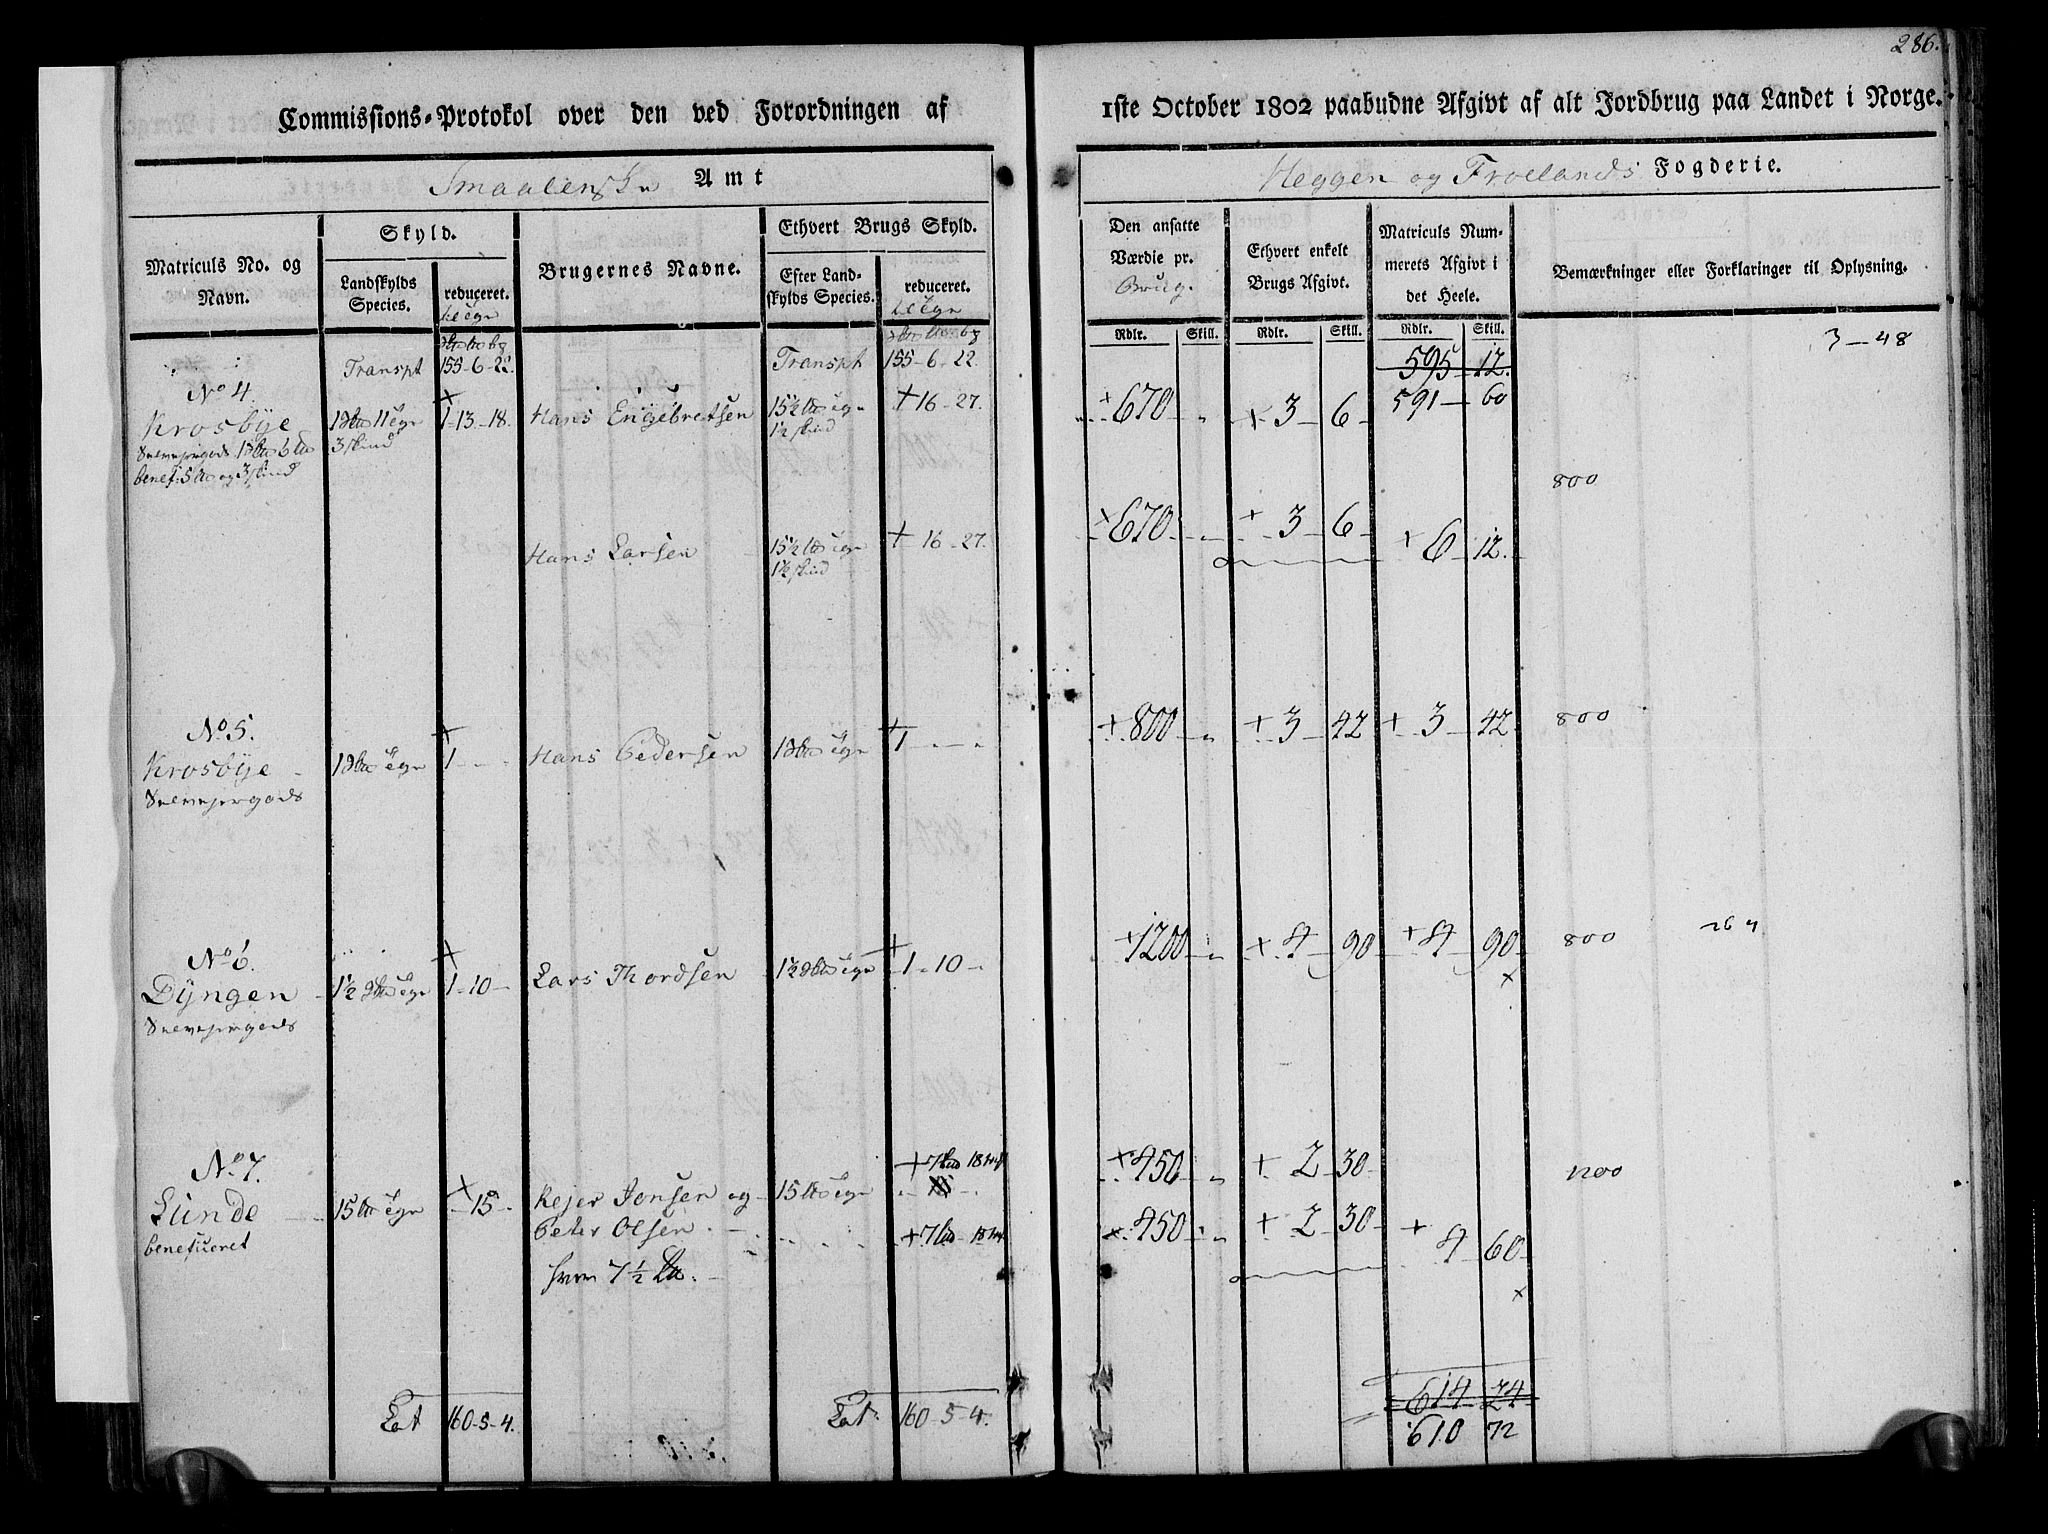 286.
Commissions-Protokol over den ved Forordningen af 1ste October 1802 paabudne Afgivt af alt Jordbrug paa Landet i Norge.
Smaalenske Amt
Heggen og Froelands Fogderie.
Matriculs No. og Navn.
Skyld.
Landskylds Species.
reduceret.
Brugernes Navne.
Ethvert Brugs Skyld.
Efter Landskylds Species.
reduceret.
Den ansatte Værdie pr. Brug.
Ethvert enkelt Brugs Afgivt.
Matriculs Nummerets Afgivt i det Heele.
Bemærkninger eller Forklaringer til Oplysning.
Rdlr. Skill. Rdlr. Skill. Rdlr. Skill.
Transpt 155-6-22 Transpt 155-6-22 595-12. 3-48
591-60
No 4.
Krosbye 1-13-18. Hans Engebretsen 15½ +16-27. +670 +3-6
3 skind 1½ skind
benef. 5 og 3 skind 800
Hans Larsen 15½ +16-27. +670 +3-6 +6-12.
1½ skind
No 5.
Krosbye 1 +1 Hans Pedersen 1 +1 +800 +3-42 +3-42 800
No 6.
Dyngen 1½ +1-10 Lars Thordsen 1½ +1-10 +1200 +4-90 +4-90 800 264
No 7. +7 18 +450 +2-30 1200
Lunde 15 +15 Rejer Jonsen og 15
beneficeret Peter Olsen +7 18 +450 +2-30 +4-60
hver 7½
Lat 160-5-4. Lat. 160-5-4. 614 24
610 72